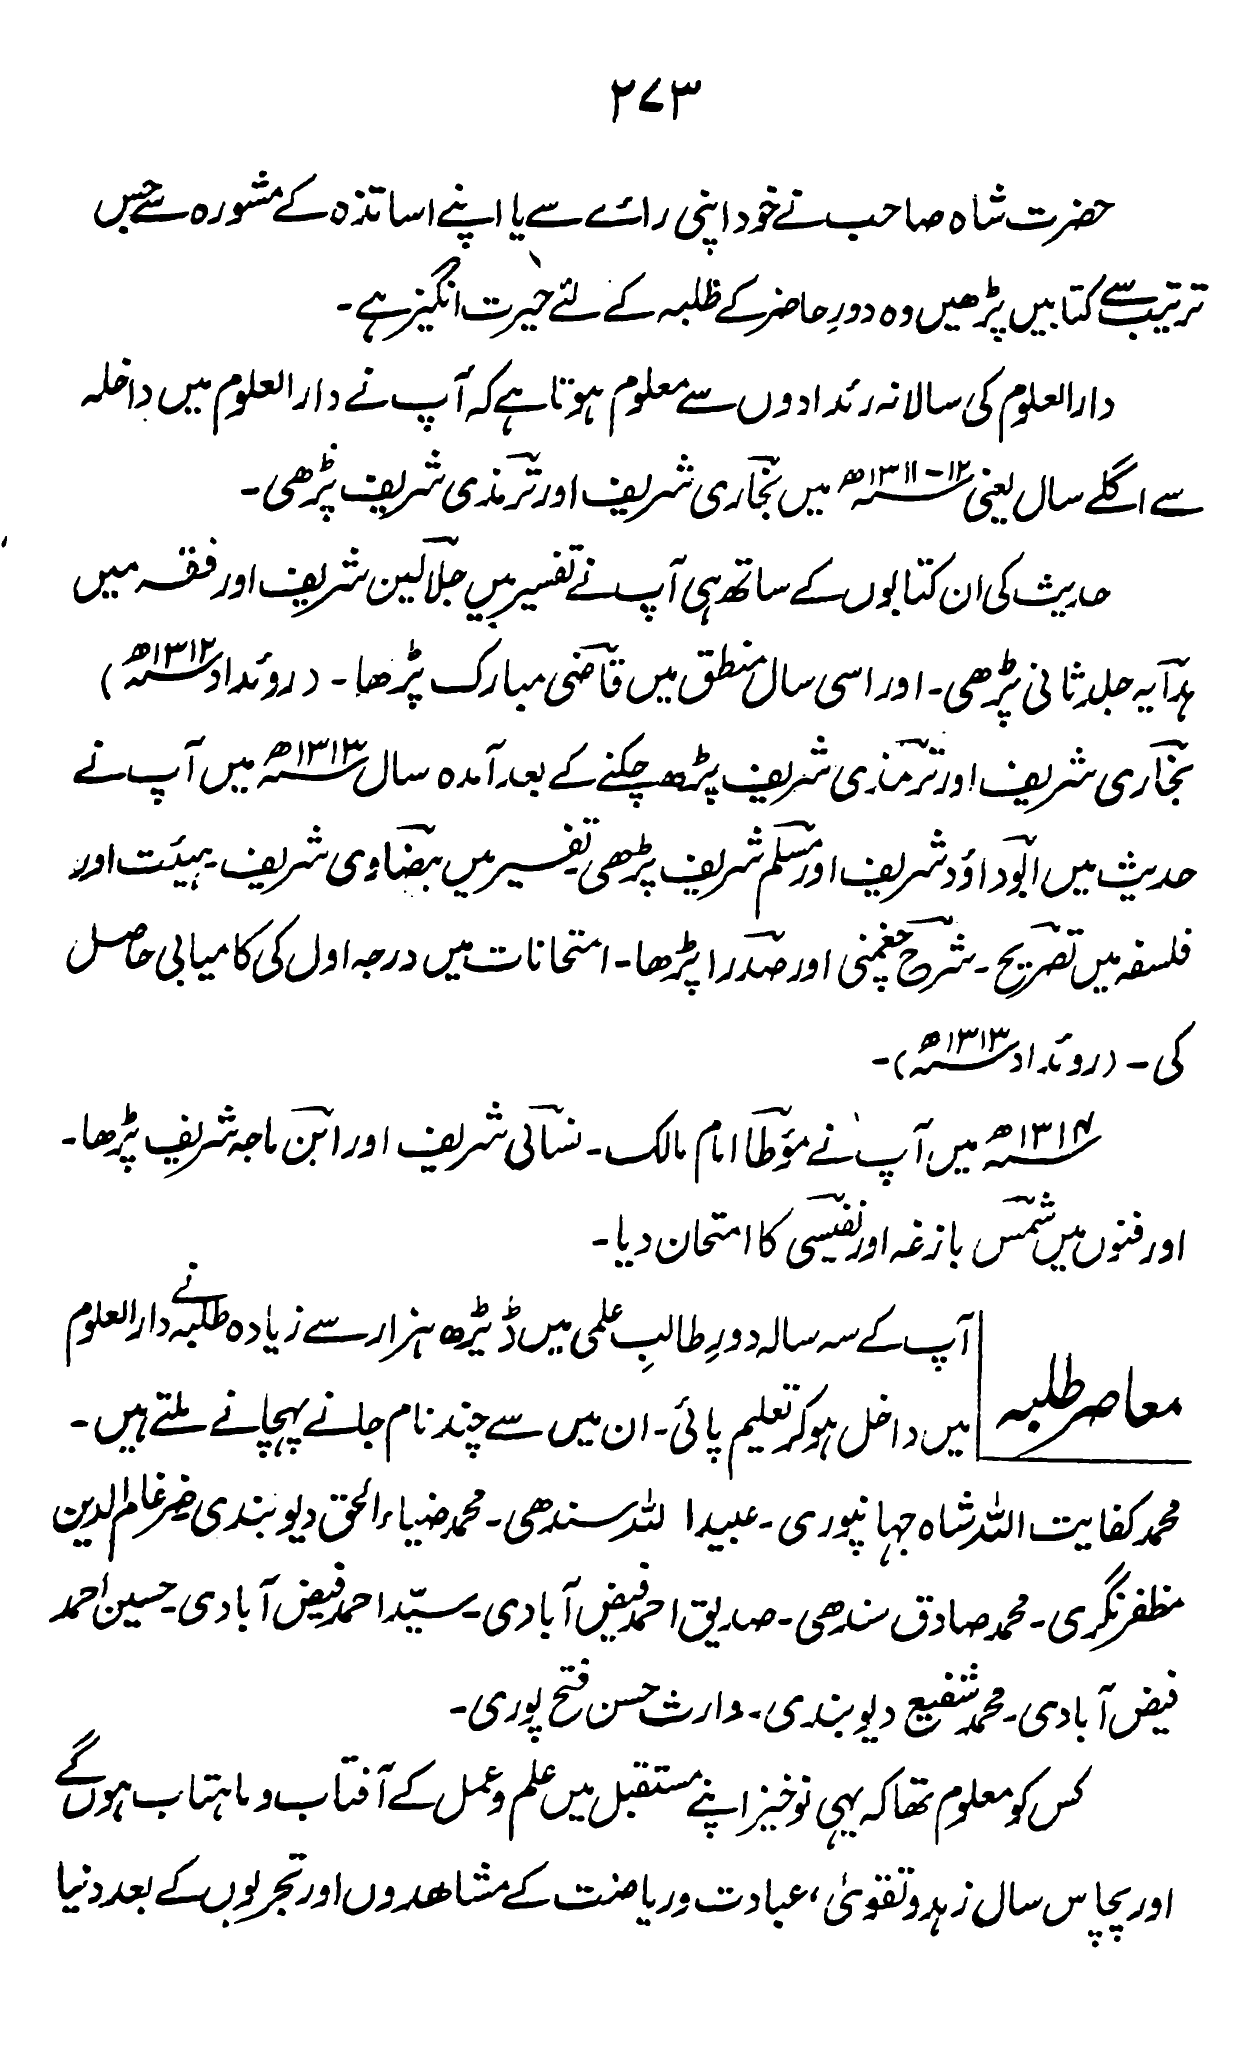 ۲۷۳
حضرت شاہ صاحب نے خود اپنی رائے سے یا اپنے اساتذہ کے مشورہ سے جس
ترتیب سے کتابیں پڑھیں وہ دورِ حاضر کے طلبہ کے لئے حیرت انگیز ہے۔
دارالعلوم کی سالانہ رئدادوں سے معلوم ہوتا ہے کہ آپ نے دارالعلوم میں داخلہ
سے اگلے سال یعنی ۱۲-۱۳۱۱ھ میں بخاری شریف اور ترمذی شریف پڑھی۔
حدیث کی ان کتابوں کے ساتھ ہی آپ نے تفسیر میں جلالین شریف اور فقہ میں
ہدایہ جلد ثانی پڑھی۔ اور اسی سال منطق میں قاضی مبارک پڑھا۔ (روئداد ۱۳۱۲ھ)
بخاری شریف اور ترمذی شریف پڑھ چکنے کے بعد آمدہ سال ۱۳۱۳ھ میں آپ نے
حدیث میں ابوداؤد شریف اور مسلم شریف پڑھی۔ تفسیر میں بیضاوی شریف۔ ہیئت اور
فلسفہ میں تصریح۔ شرح چغمنی اور صدرا پڑھا۔ امتحانات میں درجہ اول کی کامیابی حاصل
کی۔ (روئداد ۱۳۱۳ھ)۔
۱۳۱۴ھ میں آپ نے مؤطا امام مالک۔ نسائی شریف اور ابن ماجہ شریف پڑھا۔
اور فنوں میں شمس بازغہ اور نفیسی کا امتحان دیا۔
معاصر طلبہ
آپ کے سہ سالہ دورِ طالبِ علمی میں ڈیڑھ ہزار سے زیادہ طلبہ نے دارالعلوم
میں داخل ہو کر تعلیم پائی۔ ان میں سے چند نام جانے پہچانے ملتے ہیں۔
محمد کفایت اللہ شاہ جہانپوری۔ عبیداللہ سندھی۔ محمد ضیاء الحق دیوبندی ضرغام الدین
مظفر نگری۔ محمد صادق سندھی۔ صدیق احمد فیض آبادی۔ سیّد احمد فیض آبادی۔ حسین احمد
فیض آبادی۔ محمد شفیع دیوبندی۔ وارث حسن فتح پوری۔
کس کو معلوم تھا کہ یہی نوخیز اپنے مستقبل میں علم و عمل کے آفتاب و ماہتاب ہوں گے
اور پچاس سال زہد و تقویٰ، عبادت و ریاضت کے مشاھدوں اور تجربوں کے بعد دنیا